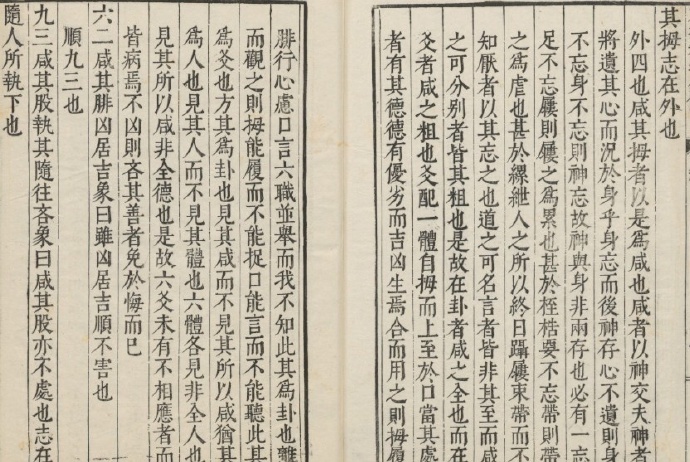 其拇志在外也
外四也咸其拇者以是爲咸也咸者以神交夫神者
將遺其心而況於身乎身忘而後神存心不遺則身
不忘身不忘則神忘故神與身非兩存也必有一忘
足不忘屨則屨之爲累也甚於桎梏要不忘帶則帶
之爲虐也甚於縲紲人之所以終日躡屨束帶而不
知厭者以其忘之也道之可名言者皆非其至而咸
之可分别者皆其粗也是故在卦者咸之全也而在
爻者咸之粗也爻配一體自拇而上至於口當其處
者有其德德有優劣而吉凶生焉合而用之則拇履
腓行心慮口言六職並舉而我不知此其爲卦也離
而觀之則拇能履而不能捉口能言而不能聽此其
爲爻也方其爲卦也見其咸而不見其所以咸猶其
爲人也見其人而不見其體也六體各見非全人也
見其所以咸非全德也是故六爻未有不相應者而
皆病焉不凶則吝其善者免於悔而已
六二咸其腓凶居吉象曰雖凶居吉順不害也
順九三也
九三咸其股執其隨往吝象曰咸其股亦不處也志在
隨人所執下也